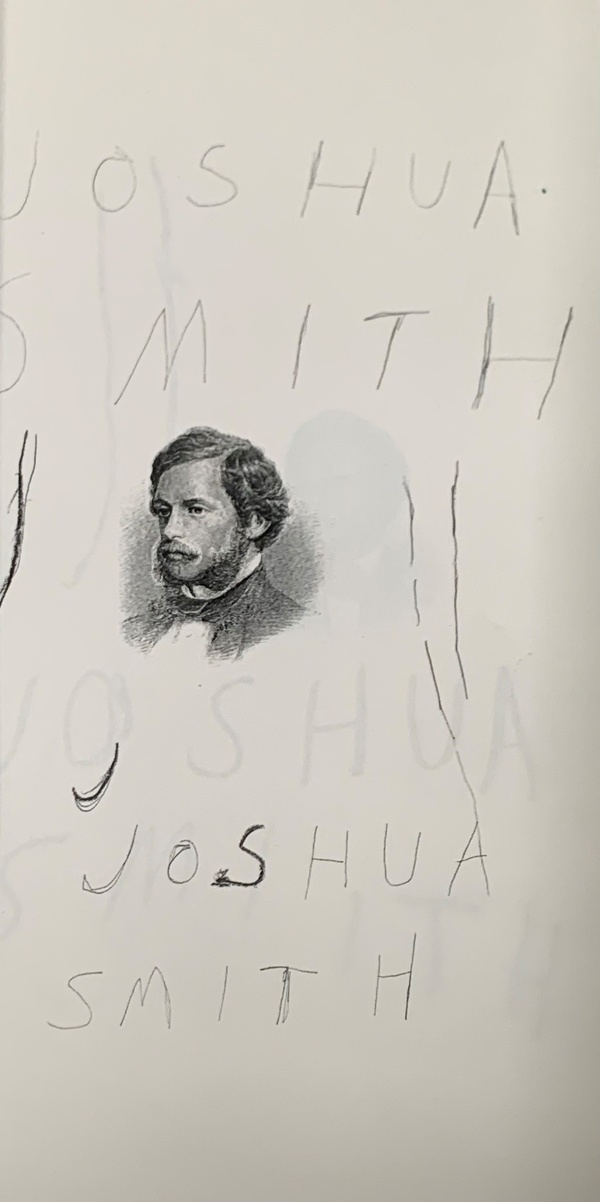 JOSHUA.
SMITH
J
JOSHUA
SMITH
J
JOSHUA
SMITH